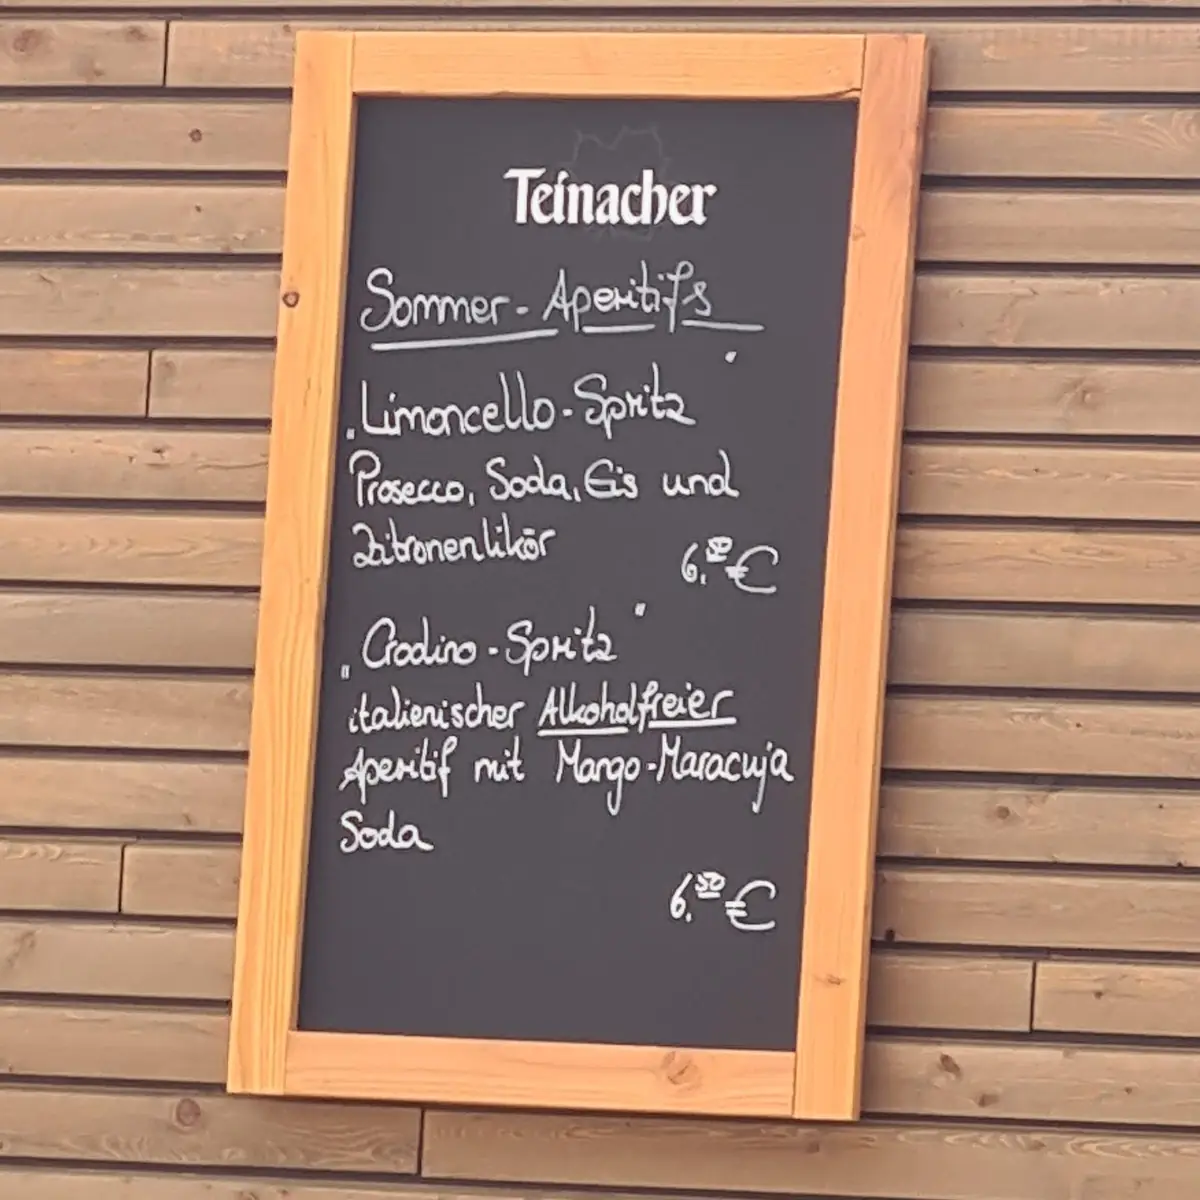 Teinacher
Sommer-Aperitifs
"Limoncello-Spritz"
Prosecco, Soda, Eis und
Zitronenlikör
6.50 €
"Crodino-Spritz"
italienischer Alkoholfreier
Aperitif mit Mango-Maracuja
Soda
6.50 €